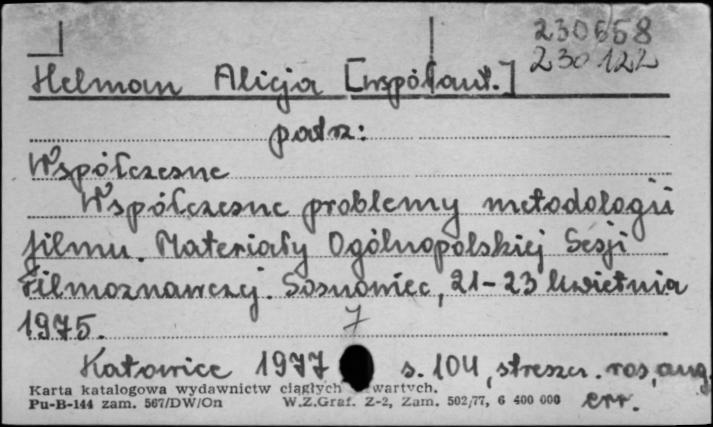 230658
230122
Helman Alicja [współaut.]
patrz:
Współczesne
Współczesne problemy metodologii
filmu. Materiały Ogólnopolskiej Sesji
Filmoznawczej. Sosnowiec, 21-23 kwietnia
1975.
7
Katowice 1977 s. 104, streszcz. ros, ang.
err.
Karta katalogowa wydawnictw ciągłych wartych.
Pu-B-144 zam. 567/DW/On W.Z.Graf. Z-2, Zam. 502/77, 6 400 000